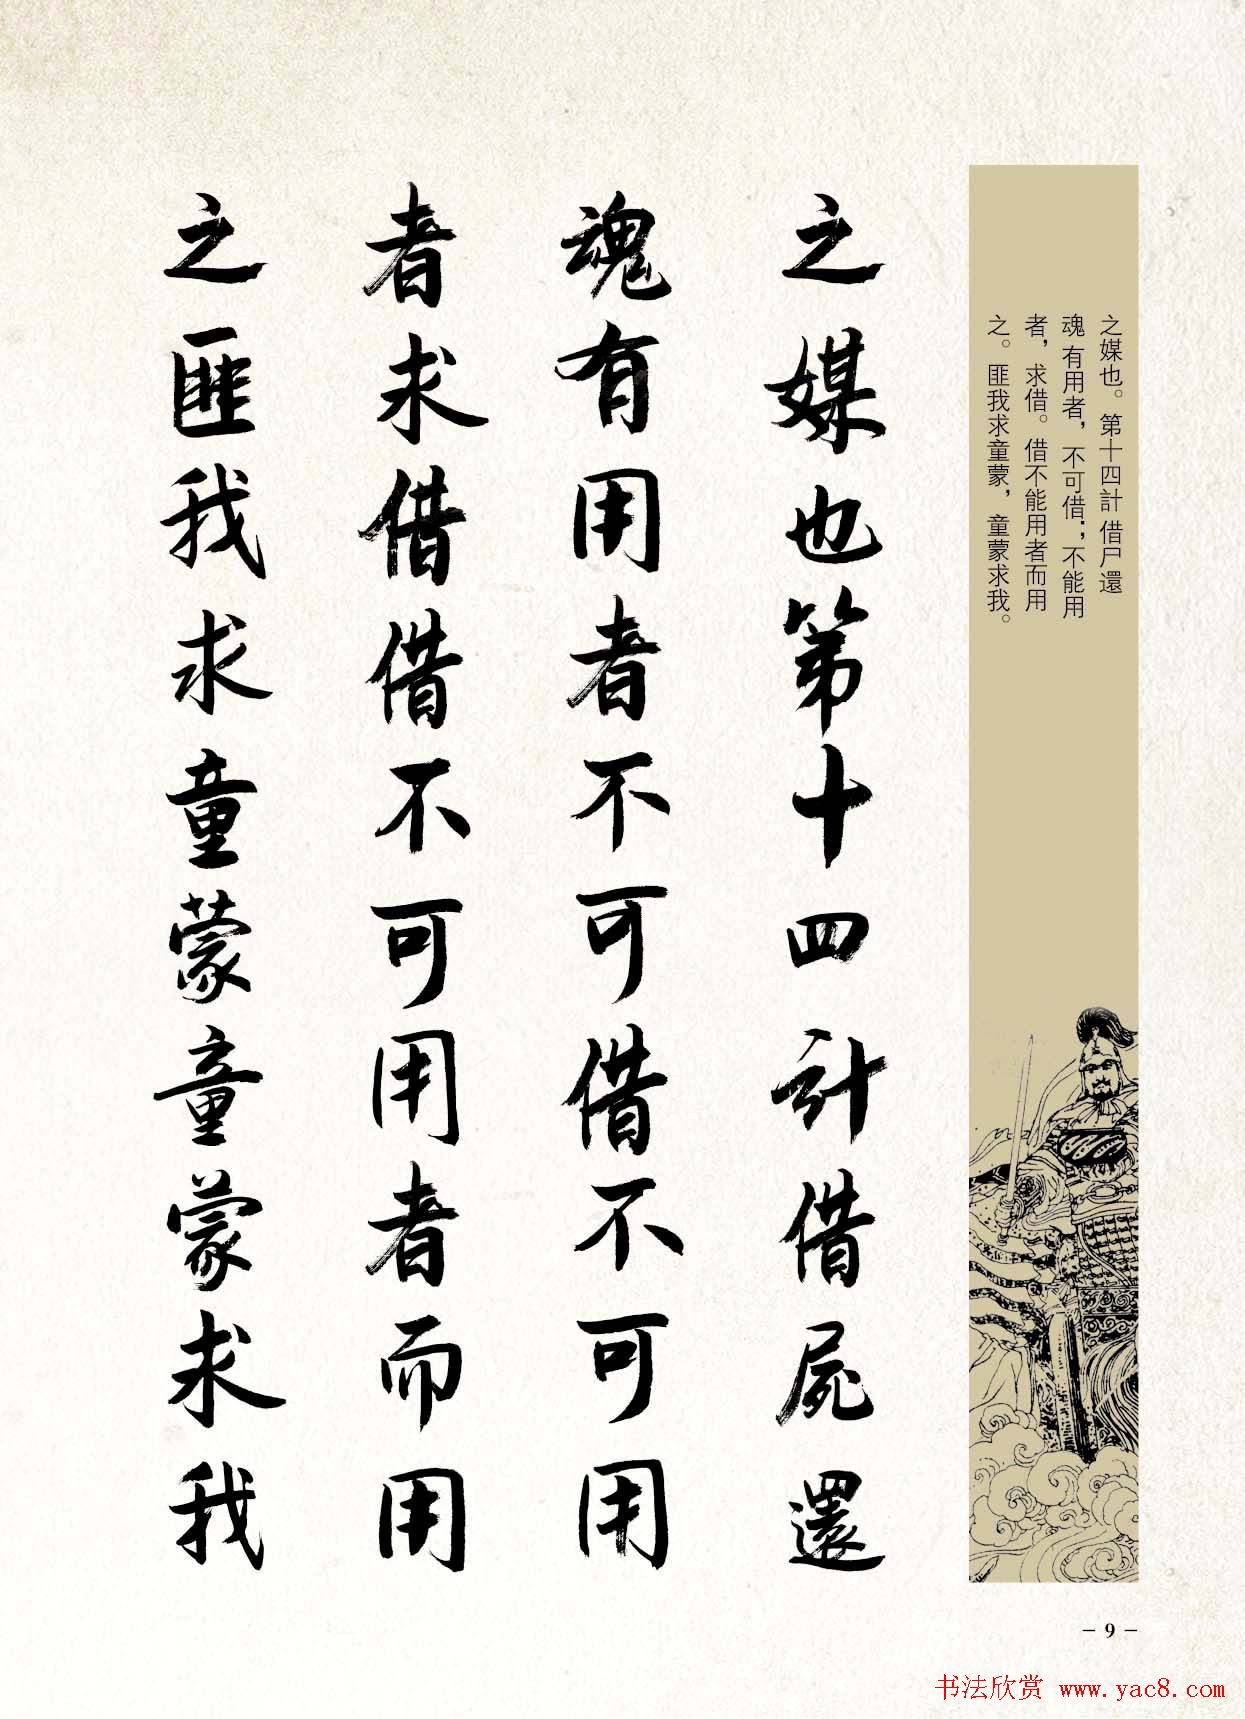 之媒也。第十四計 借尸還
魂 有用者，不可借；不能用
者，求借。借不能用者而用
之。匪我求童蒙，童蒙求我。
之媒也第十四計借屍還
魂有用者不可借不可用
者求借借不可用者而用
之匪我求童蒙童蒙求我
- 9 -
书法欣赏 www.yac8.com